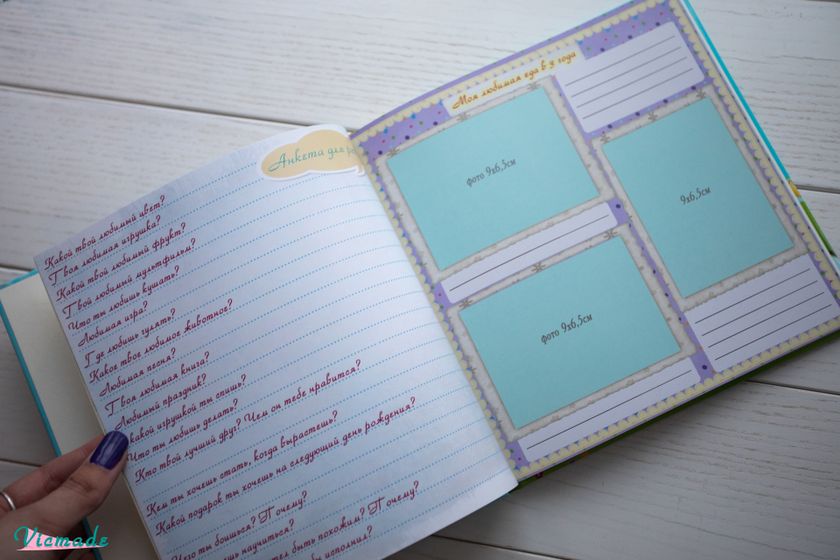 Анкета для
Какой твой любимый цвет?
Твоя любимая игрушка?
Какой твой любимый фрукт?
Твой любимый мультфильм?
Что ты любишь кушать?
Любимая игра?
Где любишь гулять?
Какое твое любимое животное?
Любимая песня?
Твоя любимая книга?
Любимый праздник?
какой игрушкой ты спишь?
Что ты любишь делать?
Кто твой лучший друг? Чем он тебе нравится?
Кем ты хочешь стать, когда вырастешь?
Какой подарок ты хочешь на следующий день рождения?
Чего ты боишься? Почему?
научиться?
быть похожим? Почему?
исполнил?
Моя любимая еда в 3 года
фото 9х6,5см
9х6,5см
фото 9х6,5см
Viamade